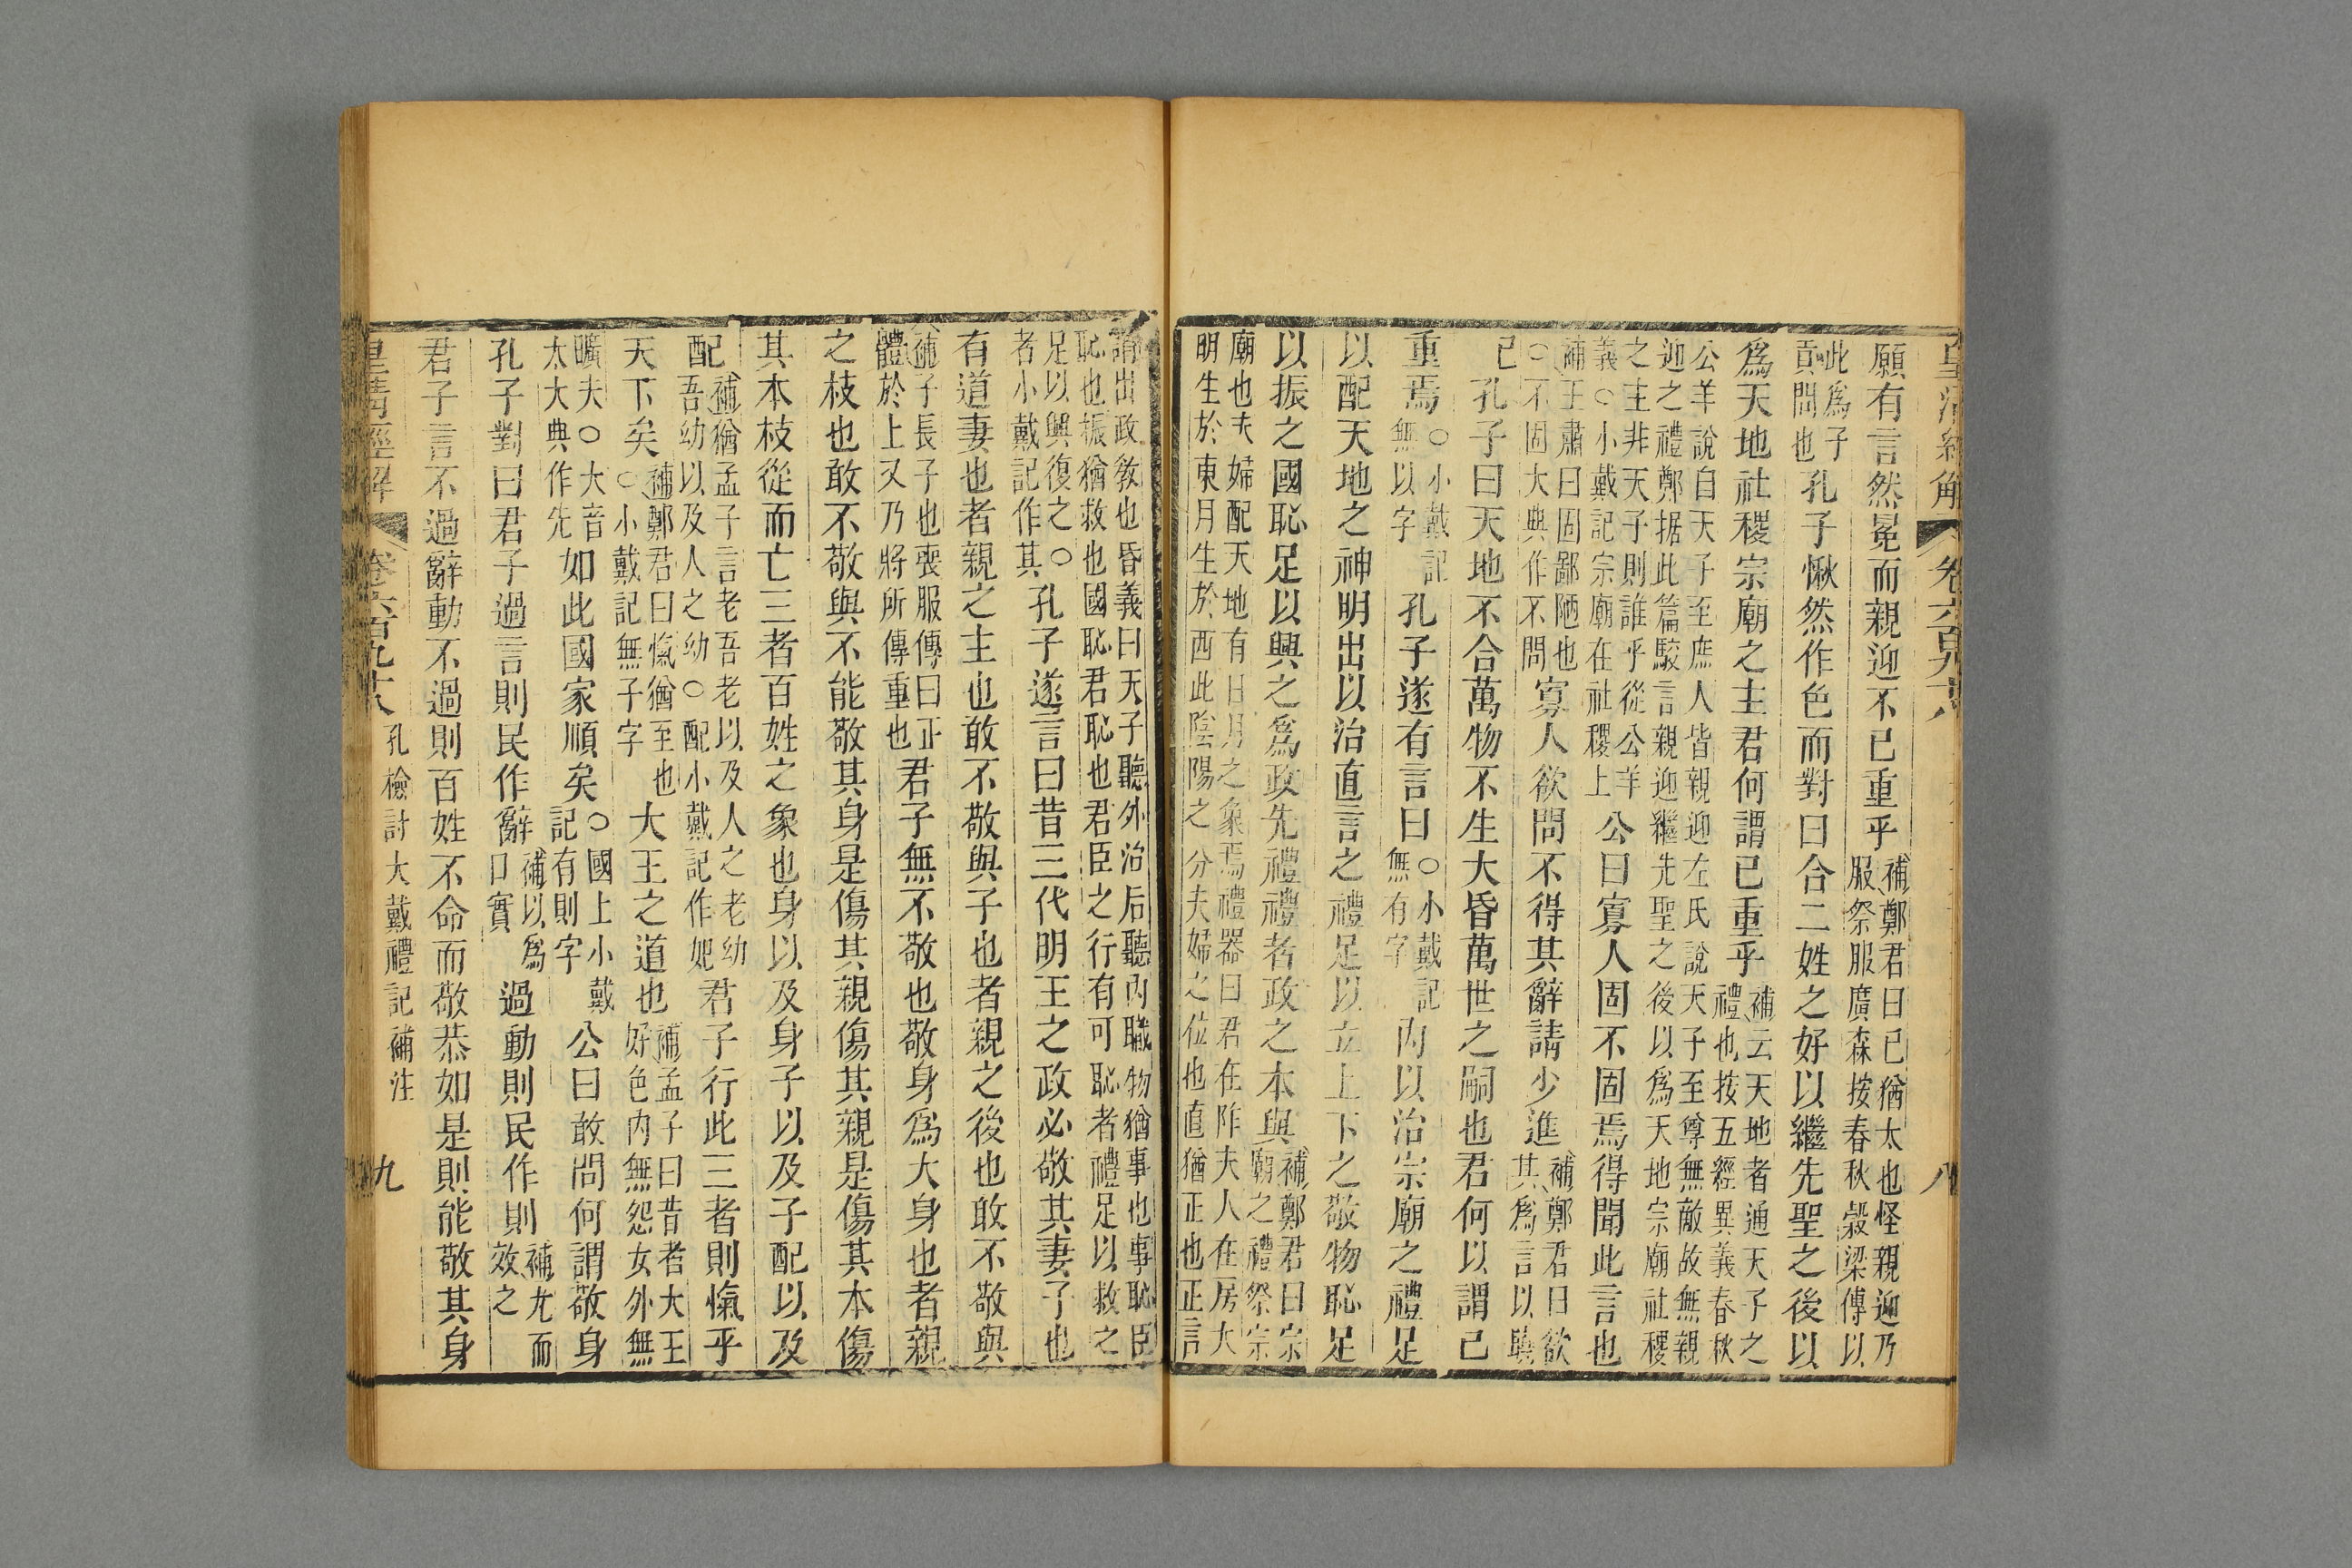 皇清經解 卷六百九十八 八
願有言然冕而親迎不已重乎補鄭君曰已猶太也怪親迎乃服祭服廣森按春秋穀梁傳以
此爲子貢問也孔子愀然作色而對曰合二姓之好以繼先聖之後以
爲天地社稷宗廟之主君何謂已重乎補云天地者通天子之禮也按五經異義春秋
公羊說自天子至庶人皆親迎左氏說天子至尊無敵故無親迎之禮鄭据此篇駮言親迎繼先聖之後以爲天地宗廟社稷
之主非天子則誰乎從公羊義○小戴記宗廟在社稷上公曰寡人固不固焉得聞此言也
補王肅曰固鄙陋也○不固大典作不問寡人欲問不得其辭請少進補鄭君曰欲其爲言以曉
己孔子曰天地不合萬物不生大昏萬世之嗣也君何以謂已
重焉○小戴記無以字孔子遂有言曰○小戴記無有字內以治宗廟之禮足
以配天地之神明出以治直言之禮足以立上下之敬物恥足
以振之國恥足以興之爲政先禮禮者政之本與補鄭君曰宗廟之禮祭宗
廟也夫婦配天地有日月之象焉禮器曰君在阼夫人在房大明生於東月生於西此陰陽之分夫婦之位也直猶正也正言
謂出政敎也昏義曰天子聽外治后聽內職物猶事也事恥臣恥也振猶救也國恥君恥也君臣之行有可恥者禮足以救之
足以興復之○者小戴記作其孔子遂言曰昔三代明王之政必敬其妻子也
有道妻也者親之主也敢不敬與子也者親之後也敢不敬與
補子長子也喪服傳曰正體於上又乃將所傳重也君子無不敬也敬身爲大身也者親
之枝也敢不敬與不能敬其身是傷其親傷其親是傷其本傷
其本枝從而亡三者百姓之象也身以及身子以及子配以及
配補猶孟子言老吾老以及人之老幼吾幼以及人之幼○配小戴記作妃君子行此三者則愾乎
天下矣補鄭君曰愾猶至也○小戴記無子字大王之道也補孟子曰昔者大王好色內無怨女外無
曠夫○大音太大典作先如此國家順矣○國上小戴記有則字公曰敢問何謂敬身
孔子對曰君子過言則民作辭補以爲口實過動則民作則補尤而效之
君子言不過辭動不過則百姓不命而敬恭如是則能敬其身
皇清經解 卷六百九十八 孔檢討大戴禮記補注 九